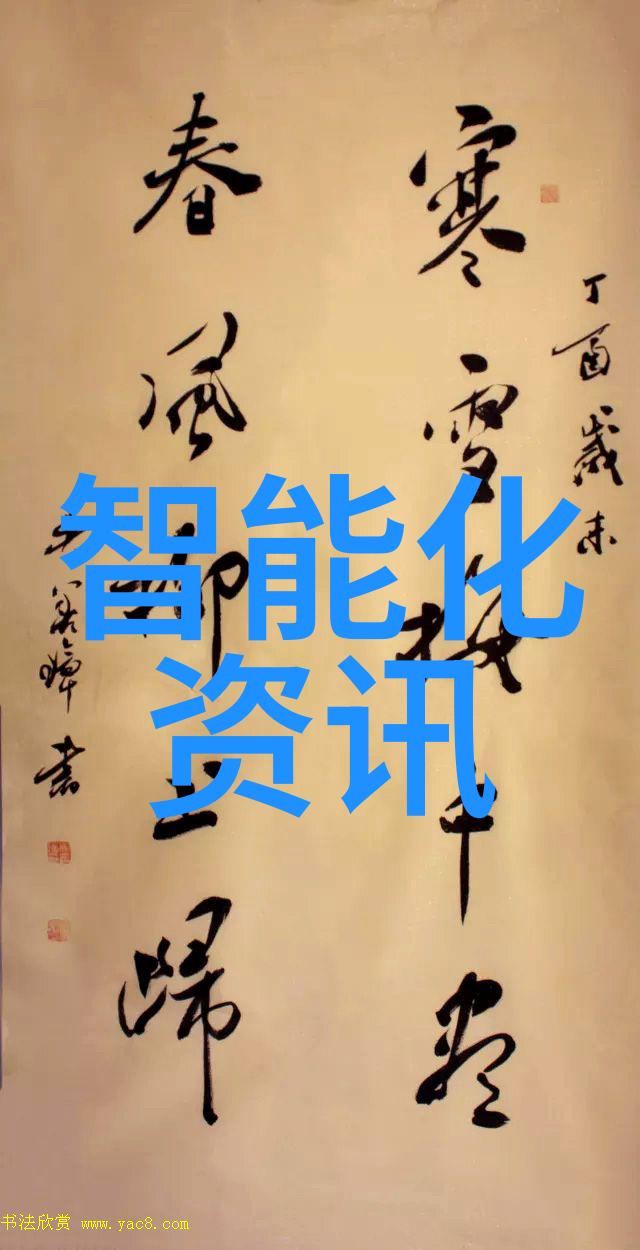 丁酉歲末
寒雪梅中盡
春風柳上歸
善璋書
智能化
资讯
书法欣赏 www.yac8.com